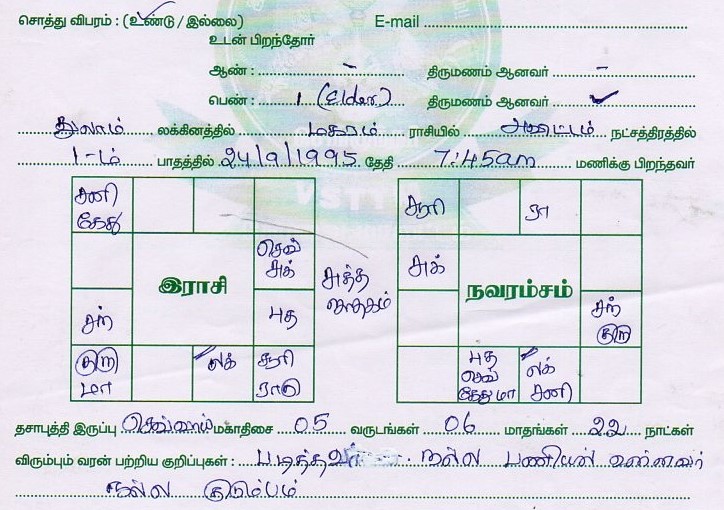 சொத்து விபரம் : (உண்டு / இல்லை) E-mail
உடன் பிறந்தோர்
ஆண் : - திருமணம் ஆனவர் -
பெண் : 1 (Elder) திருமணம் ஆனவர் ✓
துலாம் லக்கினத்தில் மகரம் ராசியில் அவிட்டம் நட்சத்திரத்தில்
1-ம் பாதத்தில் 24/9/1995 தேதி 7:45am மணிக்கு பிறந்தவர்
சனி
கேது
செவ்
சுக்
இராசி
சந்
புத
குரு
மா
லக்
சூரி
ராகு
ஜாதகம்
சூரி
ரா
சுக்
நவரம்சம்
சந்
குரு
புத
செவ்
கேது மா
லக்
சனி
தசாபுத்தி இருப்பு செவ்வாய் மகாதிசை 05 வருடங்கள் 06 மாதங்கள் 22 நாட்கள்
விரும்பும் வரன் பற்றிய குறிப்புகள் : படித்தவர் நல்ல பணியில் உள்ளவர்
நல்ல குடும்பம்